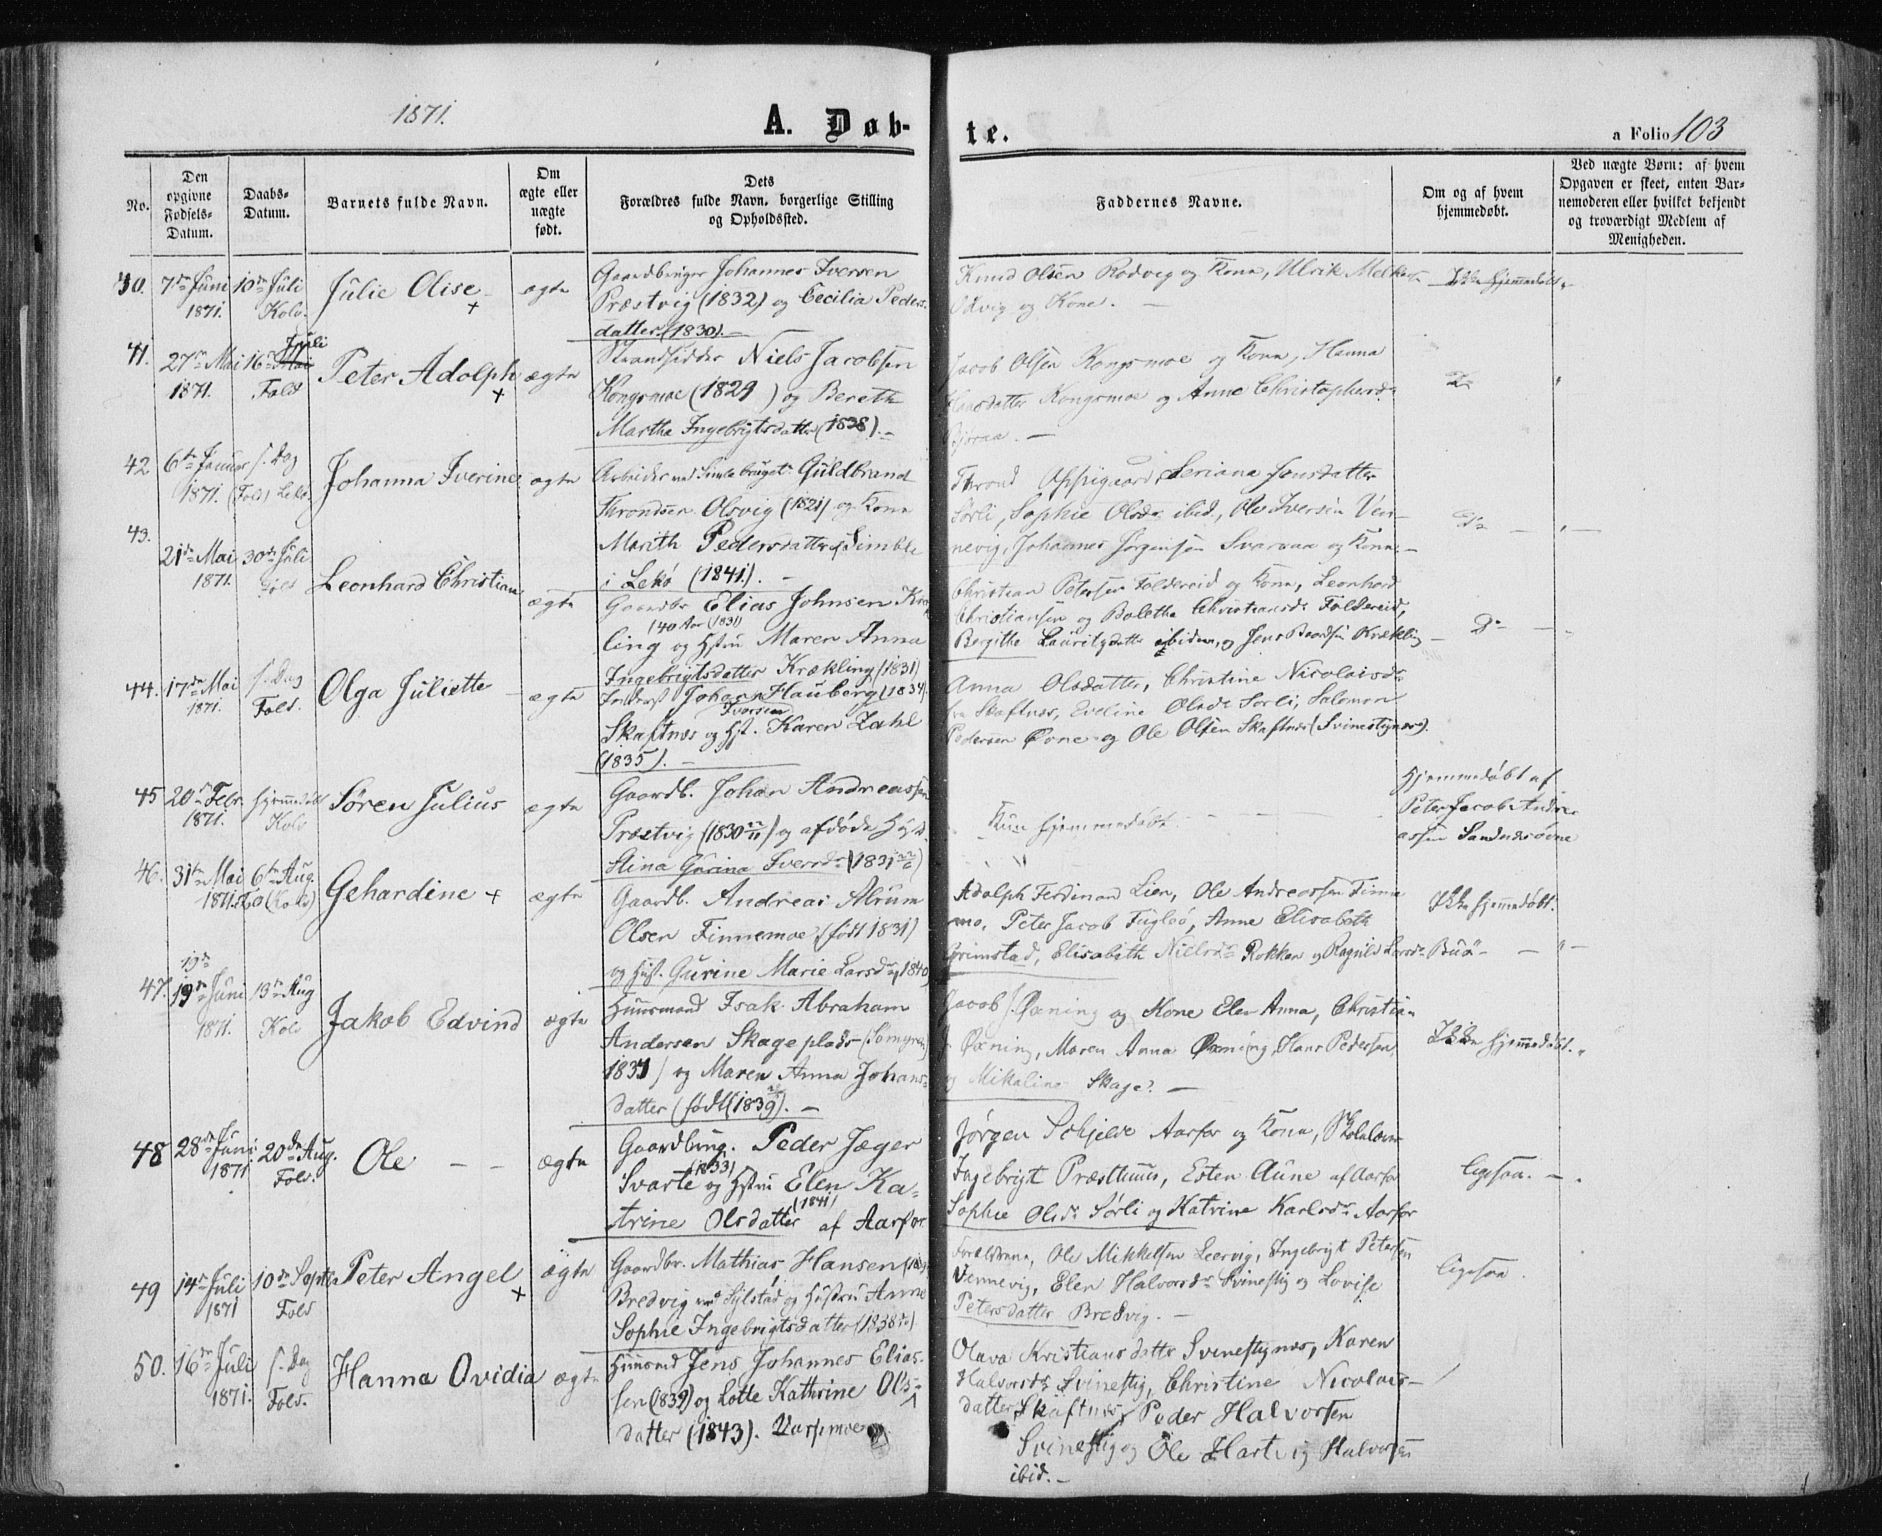 1871.
A. Døb-
te.
a Folio 103
No.
Den opgivne Fødsels-Datum.
Daabs-Datum.
Barnets fulde Navn.
Om ægte eller uægte født.
Dets Forældres fulde Navn, borgerlige Stilling og Opholdssted.
Faddernes Navne.
Om og af hvem hjemmedøbt.
Ved uægte Børn: af hvem Opgaven er skeet, enten Barnemoderen eller hvilket bekjendt og troværdigt Medlem af Menigheden.
40.
7de Juni 1871.
10de Juli Kolv.
Julie Olise
+
ægte
Gaardbruger Johannes Iversen
Præstvig (1832) og Cecilia Peders-
datter (1830).
Knud Olsen Rodvig og Kone, Ulrik
Odvig og Kone. —
Ikke hjemmedøbt.
41.
27de Mai 1871.
16de Juli Fold
Peter Adolph
+
ægte
Strandsidder Niels Jacobsen
Kongsmoe (1829) og Bereth
Martha Ingebrigtsdatter (1838). —
Jacob Olsen Kongsmoe og Kone, Hanna
Hansdatter Kongsmoe og Anne Christophersdr
Do
42
6te Januar 1871.
s. Dag (Fold) Lekø.
Johanna Iverine
ægte
Arbeider ved Guldbrand
Throndsen Olsvig (1821) og Kone
Marith Pedersdatter Simble
i Lekø (1841). —
Thrond Oppigaard, Seriana Jensdatter
Sørli, Sophie Olsdr ibid., Ole Iversen Ven-
nevig, Johannes Jørgensen Svaraaa og Kone —
Do
43.
21de Mai 1871.
30de Juli Fold
Leonhard Christian
ægte
Gaardbr Elias Johnsen Kræk
(40 Aar (1831)
ling og Hstru Maren Anna
Ingebrigtsdatter Krækling (1831)
Christian Petersen Foldereid og Kone, Leonhard
Christiansen og Baletha Christiansdr Foldereid,
Bergithe Lauritzdatter ibidem, og Jens Krækling
Do
44.
17de Mai 1871.
s. Dag Fold.
Olga Juliette
ægte
Johan Hauberg (1834)
Iversen
Skaftnæs og Hst. Karen Zahl
(1835). —
Anna Olsdatter, Christine Nicolaisdr
fra Skaftnæs, Eveline Olsdr Sørli, Salomon
Pedersen Øvne og Ole Olsen Skaftnæs (Svinestignæs).
45
20de Febr. 1871.
hjemmedøbt Kolv
Søren Julius
ægte
Gaardb. Johan Andreassen
Præstvig (1830 22/11) og afdøde
Stina Gurina Iversdr (1831 22/6)
Kun hjemmedøbt
Hjemmedøbt af
Peter Jacob Andre-
assen Sandnesøvne
46.
31te Mai 1871.
6te Aug. (Kolv)
Gehardine +
ægte
Gaardb. Andreas Abrum
Olsen Finnemoe (født 1831)
og Hust. Gurine Marie Larsdr 1840
Adolph Ferdinan Lien, Ole Andreassen Finne
mo, Peter Jacob Fugløe, Anne Elisabeth
Grimstad, Elisabeth Nielsdr Rokken og Ragnild Larsdr Buø
Ikke hjemmedøbt.
47.
19de
19de Juni 1871.
13de Aug Kolv
Jakob Edvind
ægte
Huusmand Isak Abraham
Andersen Skageplads (Somyren)
1831) og Maren Anna Johans-
datter (født 1839). —
Jacob J. Øxning og Kone Elen Anna, Christian
Øxning, Maren Anna Øxning, Hans Pedersen
og Mikaline Skage. —
Ikke hjemmedøbt.
48
28de Juni 1871
20de Aug. Fold.
Ole — —
ægte
Gaardbrug. Peder Jæger
Svarte (1833) og Hstru Elen Ka-
(1841)
trine Olsdatter af Aarfor
Jørgen Schjelve Aarfor og Kone, Skolelærer
Ingebrigt Præsthuus, Esten Aune af Aarfor
Sophie Olsdr Sørli og Katrine Karlsdr Aarfor
ligesaa. —
49
14de Juli 1871
10de Septbr Fold
Peter Angel
+
ægte
Gaardbr. Mathias Hansen
Bredvig ved Sylstad og Hustru Anne
Sophie Ingebrigtsdatter (1838)
Forældrene, Ole Mikkelsen Leervig, Ingebrigt Petersen
Vennevig, Elen Halvorsdr Svinestig og Lovise
Petersdatter Bredvig. —
ligesaa.
50.
16de Juli 1871.
s. Dag Fold.
Hanna Ovidia
ægte
Huusmd Jens Johannes Elias-
sen (1839) og Lotte Kathrine Ols-
datter (1843).
Olava Kristiansdatter Svinestignæs, Karen
Halvorsdr Svinestig, Christine Nicolais-
datter Skaftnæs, Peder Halvorsen
Svinestig og Ole Hartvig Halvorsen
ibid. —